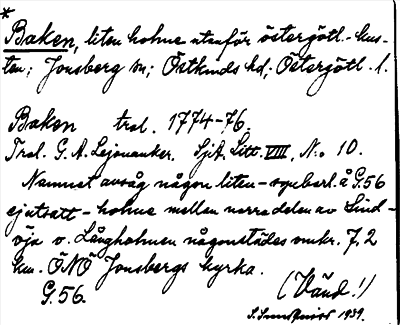 *
Baken, liten holme utanför östergötl.-kus-
ten; Jonsberg sn; Östkinds hd; Östergötl. l.
Baken trol. 1774-76.
Trol. G. A. Lejonanker. Sjk. Litt. VIII, No 10.
Namnet avsåg någon liten - synbarl. å G.56
ej utsatt - holme mellan norra delen av Lind-
öja o. Långholmen någonstädes omkr. 7,2
km. ÖNÖ Jonsbergs kyrka.
G.56. (Vänd!)
1939.